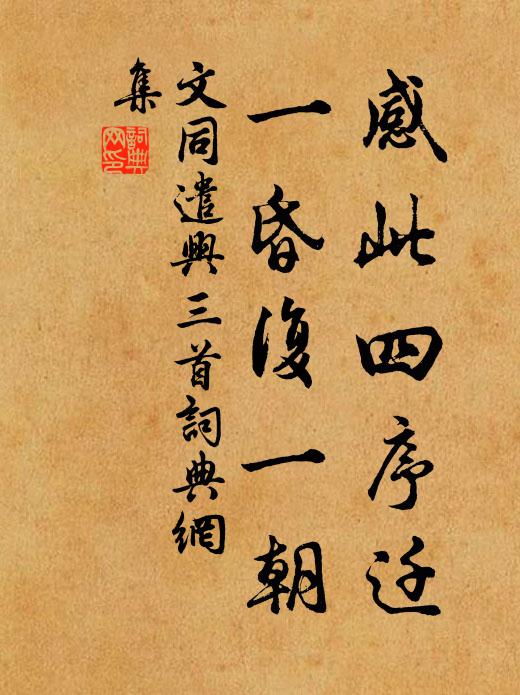 感此四序迁
一昏復一朝
文同遣興三首詞典網
集
詞典
网印